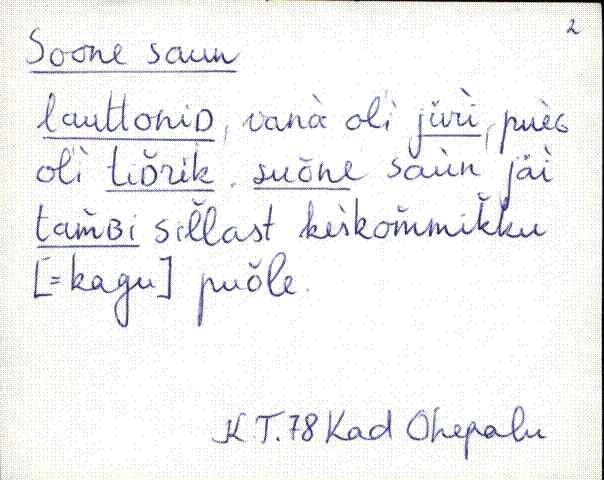 2
Soone saun
lauttoniD, vanà oli jǖrì, puèG
olì tiD̆rik. suŏne saùn jäi
tam̆Bi sil̆last kèskom̆mik̆ku
[=kagu] puŏle.
K.T.78 Kad Ohepalu